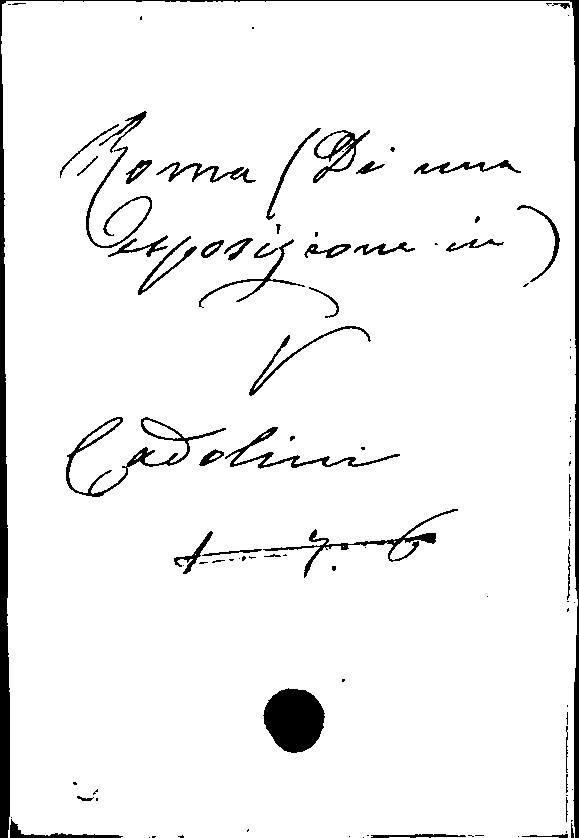 Roma (Di una
esposizione in)
V
Cadolini
1. 7. 6